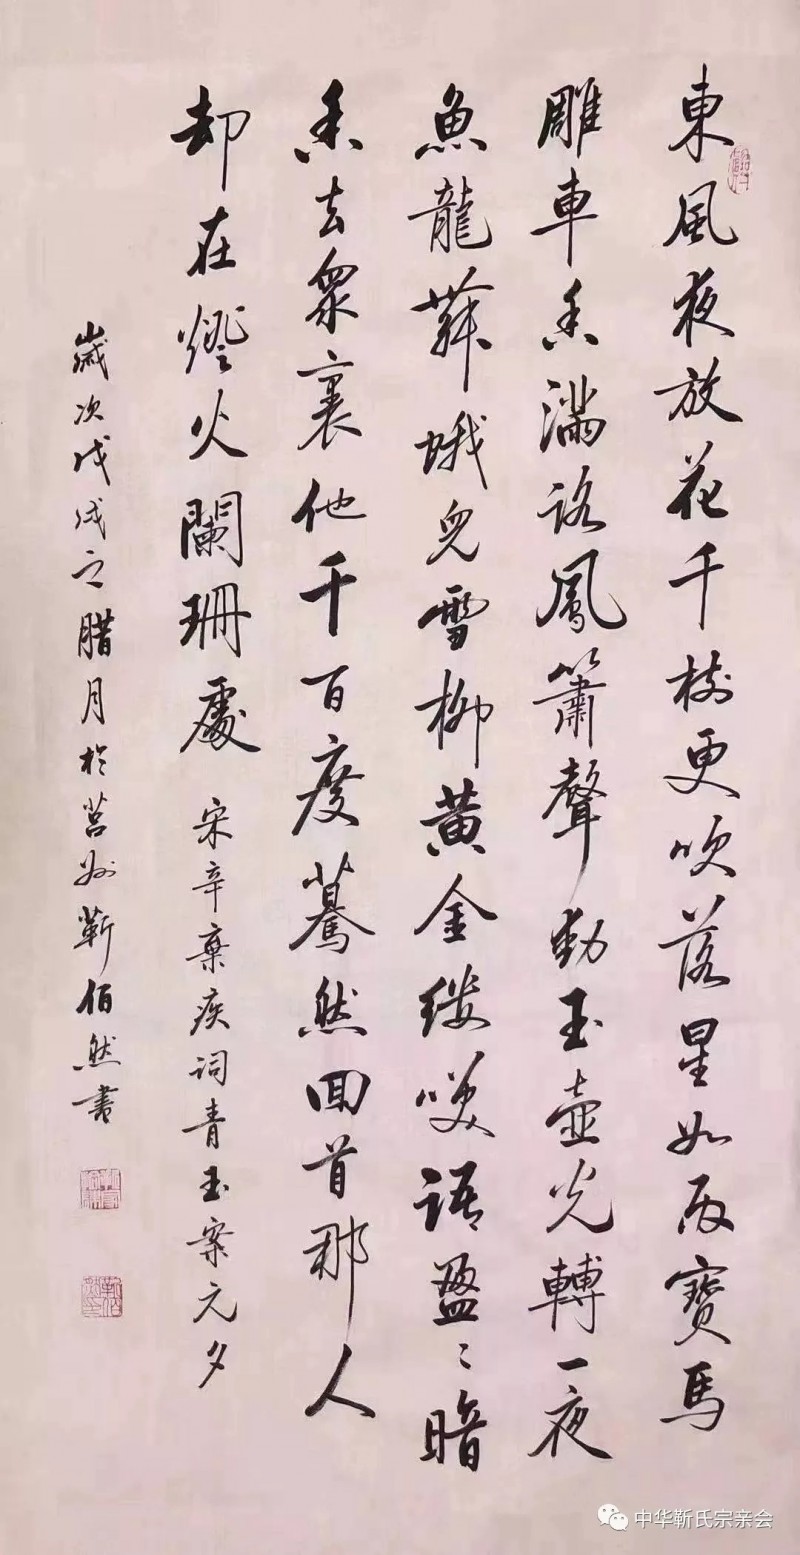 東風夜放花千樹更吹落星如雨寶馬
雕車香滿路鳳簫聲動玉壺光轉一夜
魚龍舞蛾兒雪柳黄金縷笑語盈〻暗
香去衆裏他千百度驀然回首那人
却在燈火闌珊處 宋辛棄疾詞青玉案元夕
歲次戊戌之腊月於莒州靳佰然書
中华靳氏宗亲会